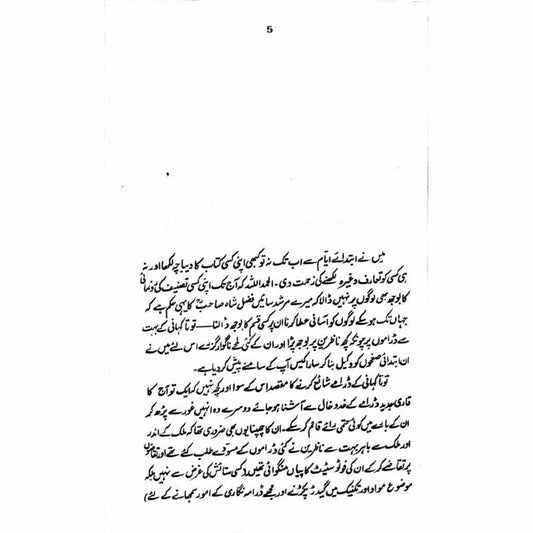 5
میں نے ابتدائے ایام سے اب تک نہ تو کبھی اپنی کسی کتاب کا دیباچہ لکھا اور نہ
ہی کسی کو تعارف وغیرہ لکھنے کی زحمت دی۔ الحمد اللہ کہ آج تک اپنی کسی تصنیف کی رونمائی
کا بوجھ بھی لوگوں پر نہیں ڈالا کہ میرے مرشد سائیں فضل شاہ صاحبؒ کا یہی حکم ہے کہ
جہاں تک ہو سکے لوگوں کو آسانی عطا کرنا ان پر کسی قسم کا بوجھ نہ ڈالنا — توتا کہانی کے بہت
سے ڈراموں پر چونکہ کچھ ناظرین پر بوجھ پڑا اور ان کے کئی لمحے ناگوار گزرے اس لئے میں نے
ان ابتدائی صفحوں کو وکیل بنا کر سارا کیس آپ کے سامنے پیش کر دیا ہے۔
توتا کہانی کے ڈرامے شائع کرنے کا مقصد اس کے سوا اور کچھ نہیں کہ ایک تو آج کا
قاری جدید ڈرامے کے خدوخال سے آشنا ہو جائے دوسرے وہ انہیں غور سے پڑھ کر
ان کے بارے میں کوئی حتمی رائے قائم کر سکے۔ ان کا چھپنا یوں بھی ضروری تھا کہ ملک کے اندر
اور ملک سے باہر بہت سے ناظرین نے کئی ڈراموں کے مسودے طلب کئے تھے اور تقاضوں
پر تقاضے کر کے ان کی فوٹو سٹیٹ کاپیاں منگوائی تھیں (کسی ستائش کی غرض سے نہیں بلکہ
موضوع مواد اور تکنیک میں کیڑے پکڑنے اور مجھے ڈرامہ نگاری کے امور سمجھانے کے لئے)